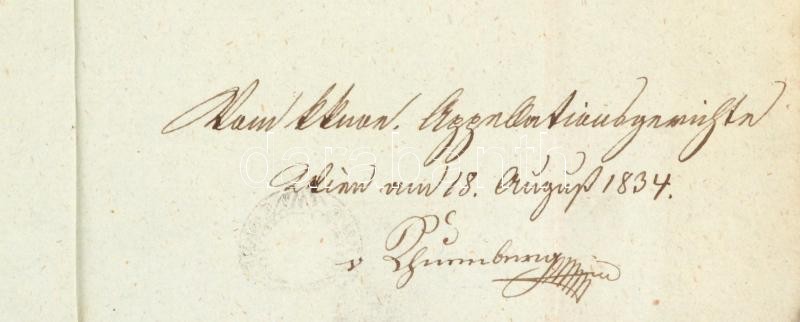 Vom k k n oe. Appellationsgerichte
Wien am 18. August 1834.
v Thurnberg